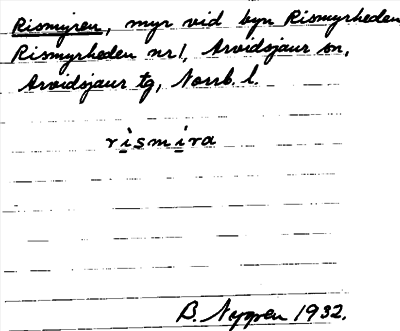 Rismyren, myr vid byn Rismyrheden
Rismyrheden nr 1, Arvidsjaur sn,
Arvidsjaur tg, Norrb. l.
rismira
B. Nygren 1932.